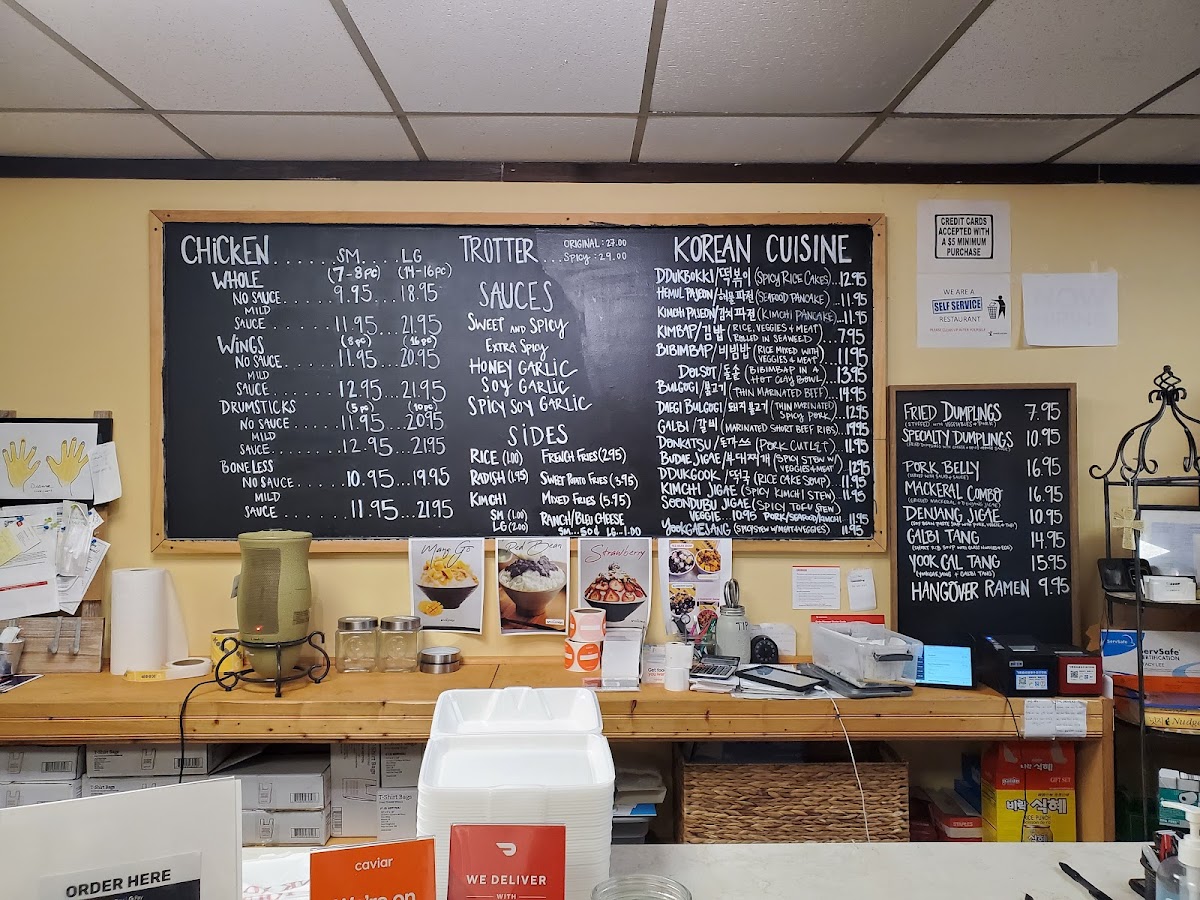 CHICKEN SM. LG
(7-8 pc) (14-16pc)
WHOLE
NO SAUCE 9.95 18.95
MILD
SAUCE 11.95 21.95
WINGS (8 pc) (16 pc)
NO SAUCE 11.95 20.95
MILD
SAUCE 12.95 21.95
DRUMSTICKS (5 pc) (10 pc)
NO SAUCE 11.95 20.95
MILD
SAUCE 12.95 21.95
BONELESS
NO SAUCE 10.95 19.95
MILD
SAUCE 11.95 21.95
TROTTER ORIGINAL: 27.00
SPICY: 29.00
SAUCES
SWEET AND SPICY
EXTRA SPICY
HONEY GARLIC
SOY GARLIC
SPICY SOY GARLIC
SIDES
RICE (1.00) FRENCH FRIES (2.95)
RADISH (1.95) SWEET POTATO FRIES (3.95)
KIMCHI MIXED FRIES (5.95)
SM (1.00) RANCH/BLEU CHEESE
LG (2.00) SM... 50¢ LG-1.00
KOREAN CUISINE
DDUKBOKKI/떡볶이 (SPICY RICE CAKES) 12.95
HEMUL PAJEON/해물파전 (SEAFOOD PANCAKE) 11.95
KIMCHI PAJEON/김치파전 (KIMCHI PANCAKE) 11.95
KIMBAP/김밥 (RICE, VEGGIES & MEAT ROLLED IN SEAWEED) 7.95
BIBIMBAP/비빔밥 (RICE MIXED WITH VEGGIES & MEAT) 11.95
DOLSOT/돌솥 (BIBIMBAP IN A HOT CLAY BOWL) 13.95
BULGOGI/불고기 (THIN MARINATED BEEF) 14.95
DAEGI BULGOGI/돼지불고기 (THIN MARINATED SPICY PORK) 12.95
GALBI/갈비 (MARINATED SHORT BEEF RIBS) 19.95
DONKATSU/돈까쓰 (PORK CUTLET) 11.95
BUDAE JIGAE/부대찌개 (SPICY STEW W/ VEGGIES & MEAT) 12.95
DDUKGOOK/떡국 (RICE CAKE SOUP) 11.95
KIMCHI JIGAE (SPICY KIMCHI STEW) 11.95
SOONDUBU JIGAE (SPICY TOFU STEW)
VEGGIE 10.95 PORK/SEAFOOD/KIMCHI 11.95
YOOKGAEJANG (SPICY STEW W/ MEAT & VEGGIES) 11.95
CREDIT CARDS
ACCEPTED WITH
A $5 MINIMUM
PURCHASE
WE ARE A
SELF SERVICE
RESTAURANT
FRIED DUMPLINGS 7.95
SPECIALTY DUMPLINGS 10.95
PORK BELLY 16.95
MACKERAL COMBO 16.95
DENJANG JIGAE 10.95
GALBI TANG 14.95
YOOK GAL TANG 15.95
(YOOKGAEJANG + GALBI TANG)
HANGOVER RAMEN 9.95
Mango
Red Bean
Strawberry
T-Shirt Bags
T-Shirt Bags
T-Shirt Bags
ServSafe
CERTIFICATION
Nudge
바락 식혜
RICE PUNCH
GIFT SET
STAPLES
ORDER HERE
caviar
We're on
WE DELIVER
WITH